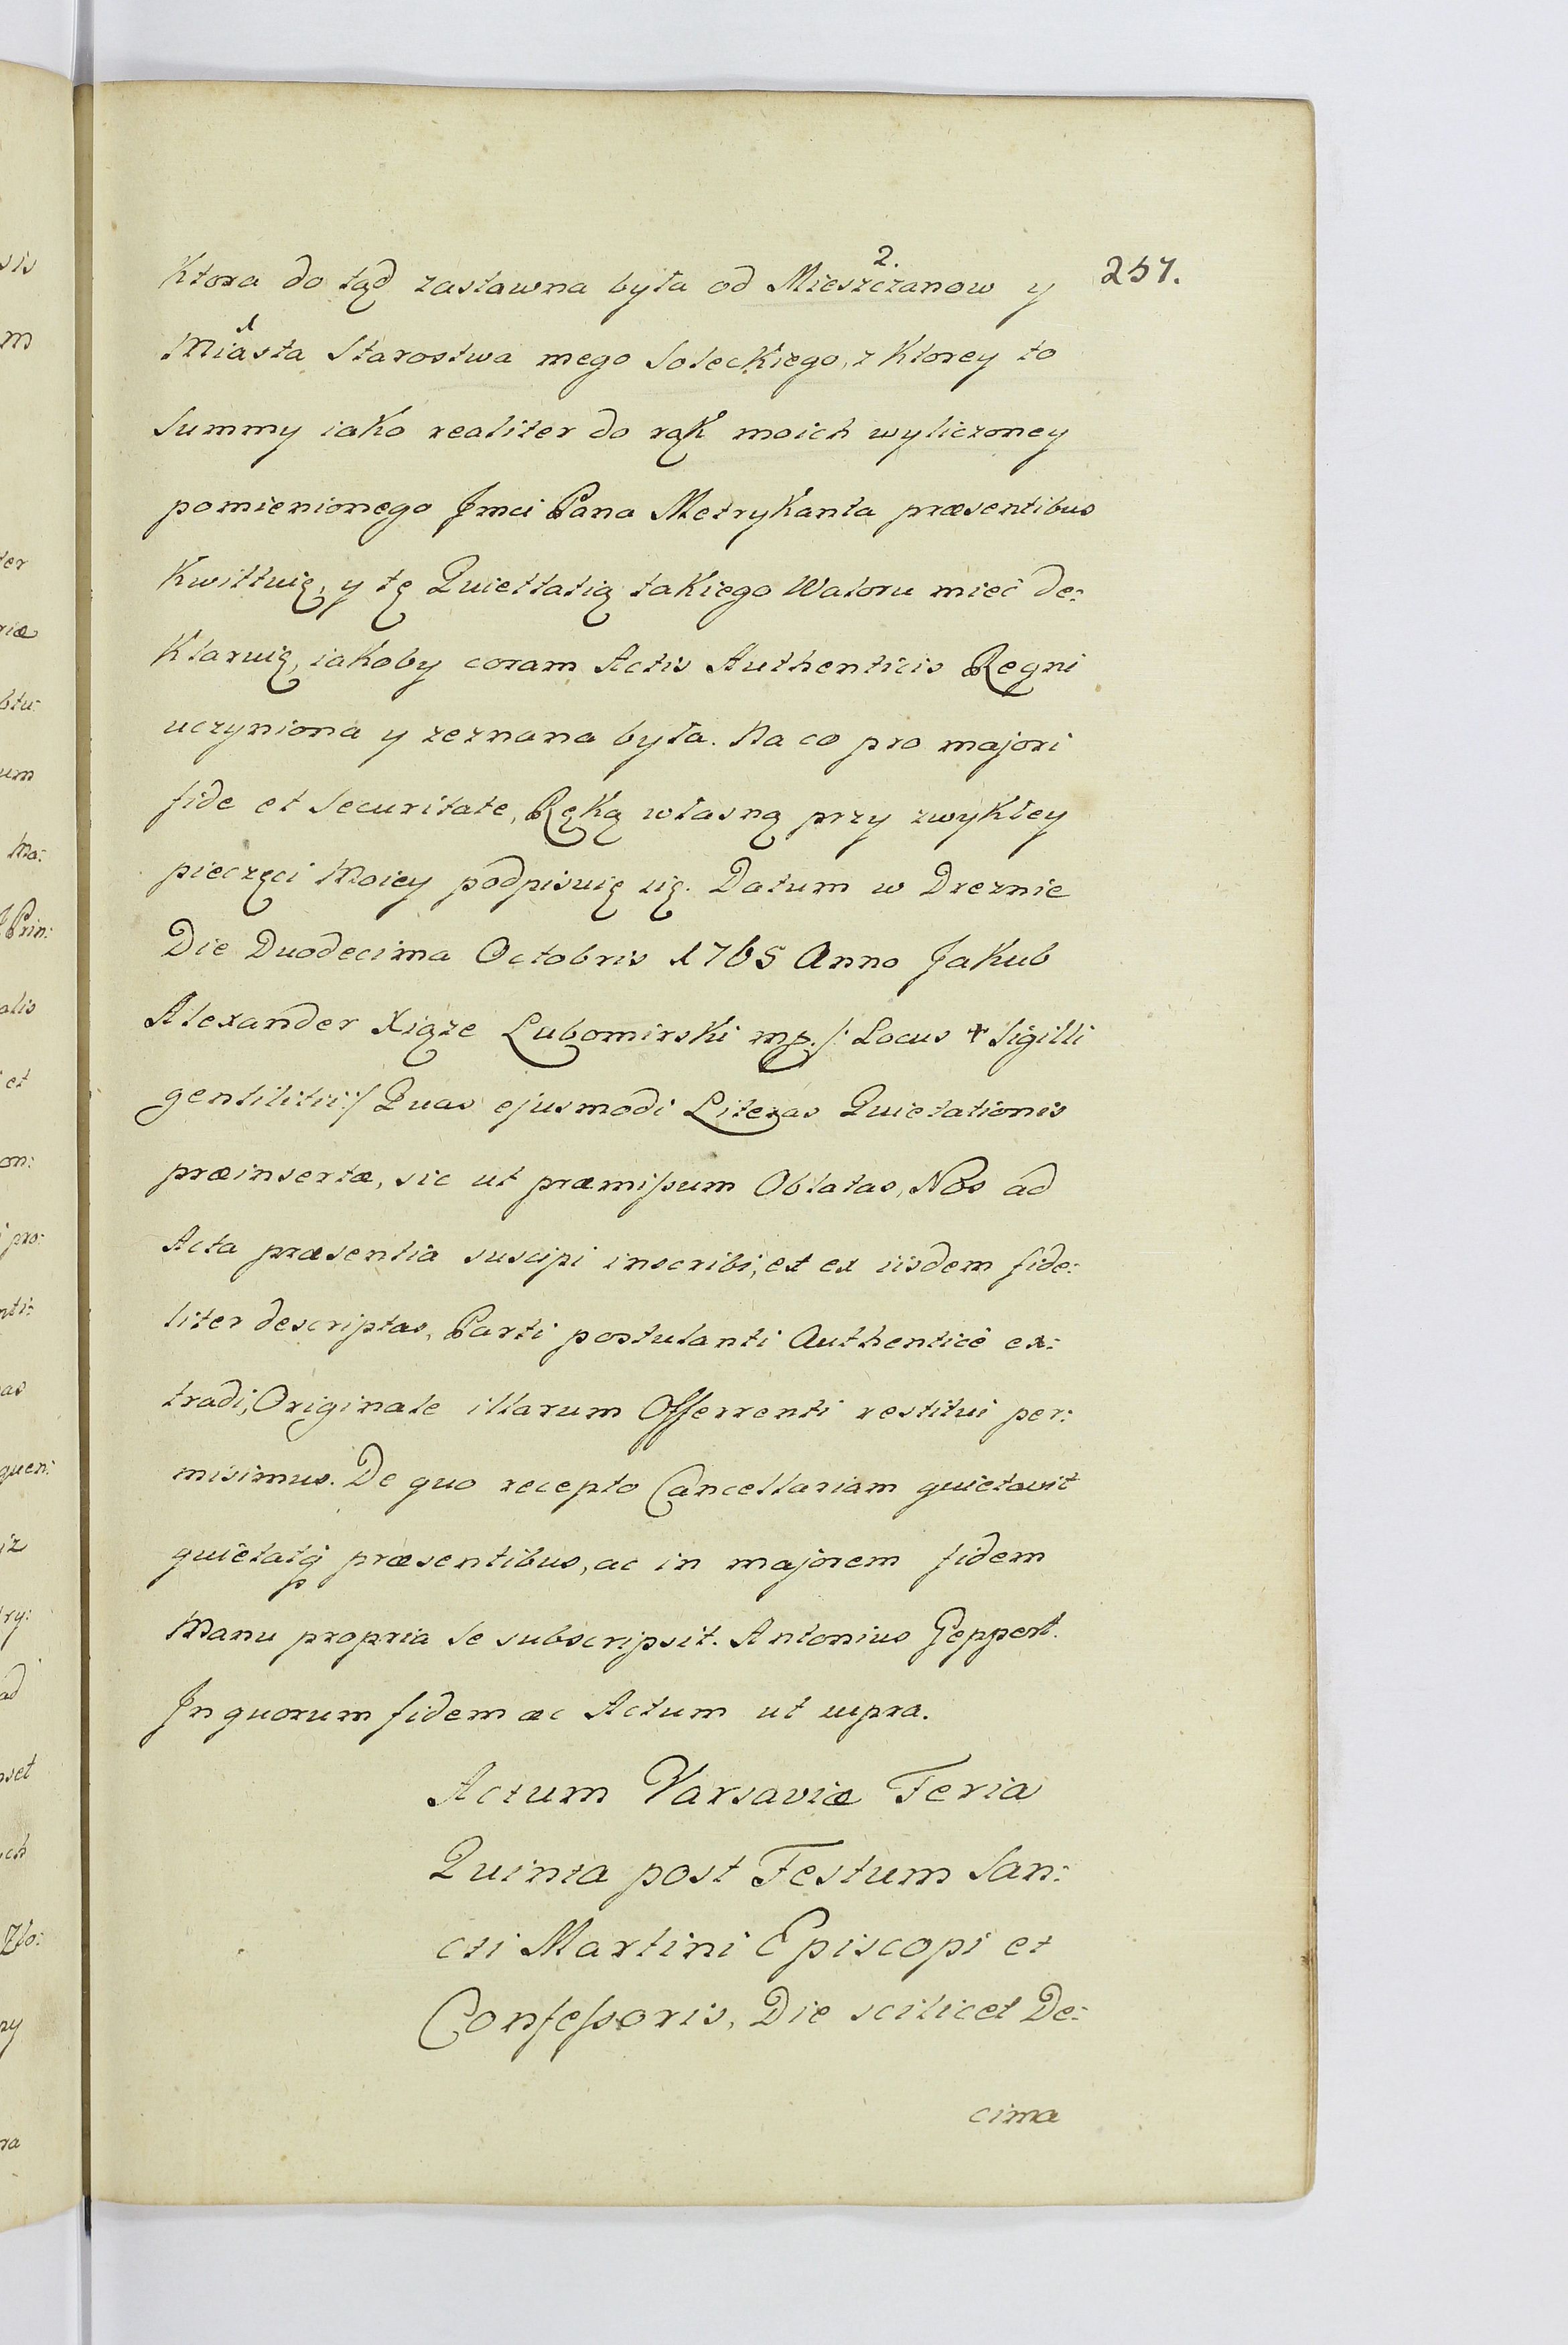 257.
2.
Ktora do tąd zastawna była od Mieszczanow y
1
Miasta Starostwa mego Soleckiego, z Ktorey to
Summy iako realiter do rąk moich wyliczoney
pomienionego Jmci Pana Metrykanta præsentibus
Kwittuię, y tę Quiettatią takiego Waloru mieć de:
klaruię, iakoby coram Actis Authenticis Regni
uczyniona y zeznana była. Na co pro majori
fide et Securitate, Ręką własną przy zwykłey
pieczęci Moiey podpisuię się. Datum w Dreznie
Die Duodecima Octobris 1765 Anno Jakub
Alexander Xiąże Lubomirski mp. /: Locus + Sigilli
gentilitii :/ Quas ejusmodi Literas Quietationis
præinsertæ, sic ut præmissum Oblatas, Nos ad
Acta præsentia suscipi inscribi, et ex iisdem fide:
liter descriptas, Parti postulanti Authenticè ex:
tradi, Originale illarum Offerrenti restitui per:
misimus. De quo recepto Cancellariam quietavit
quietatq præsentibus, ac in majorem fidem
Manu propria se subscripsit. Antonius Geppert.
In quorum fidem ac Actum ut supra.
Actum Varsaviæ Feria
Quinta post Festum San:
cti Martini Episcopi et
Confessoris, Die scilicet De:
cima